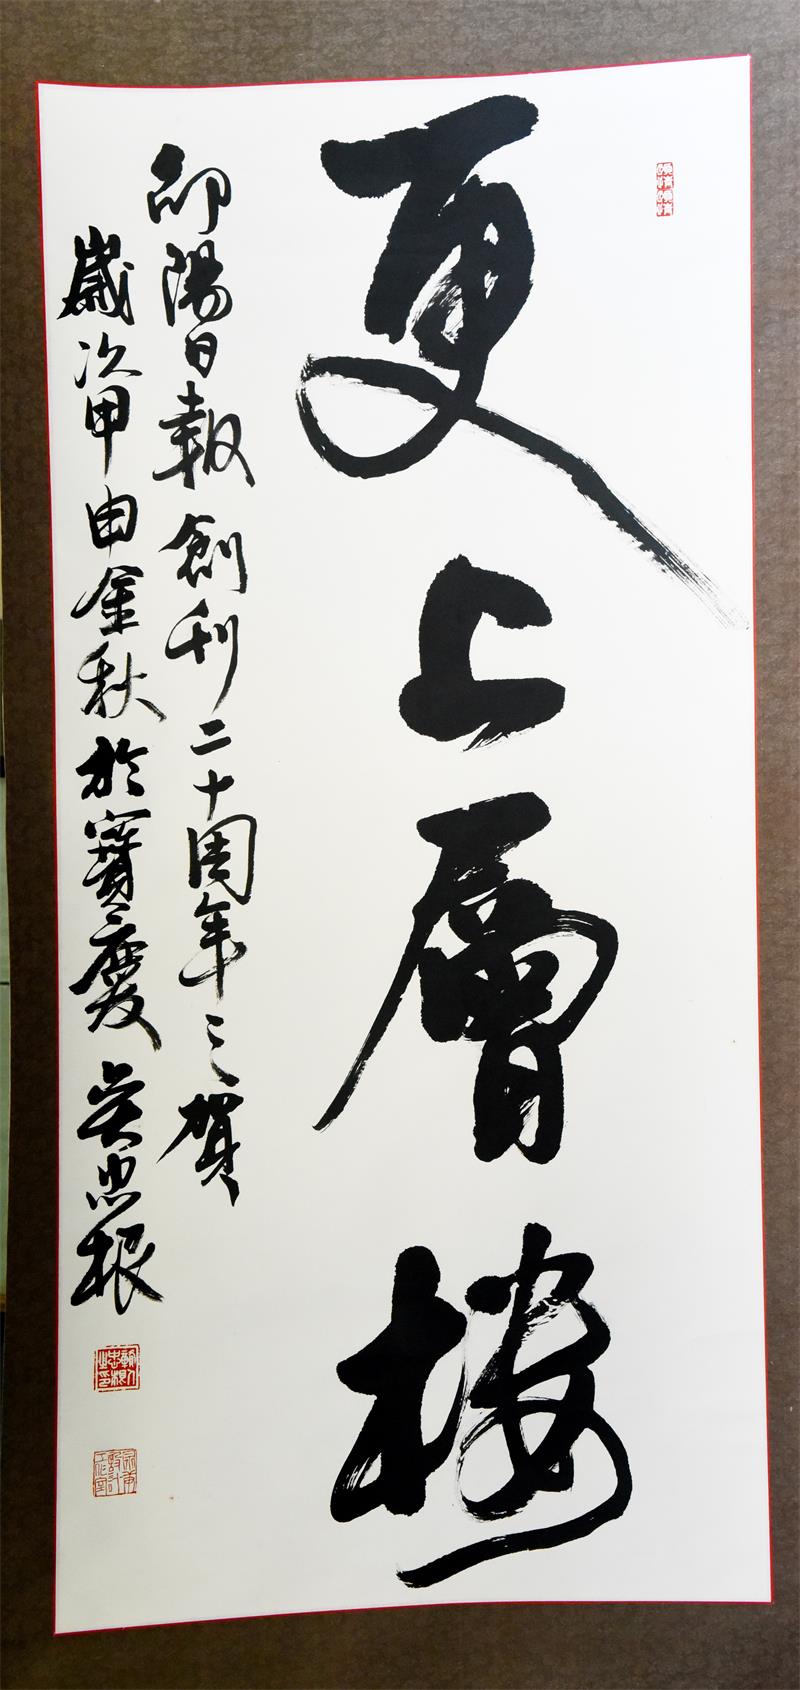 更上層樓
邵陽日報創刊二十周年之賀
歲次甲申金秋於寶慶 吳忠根